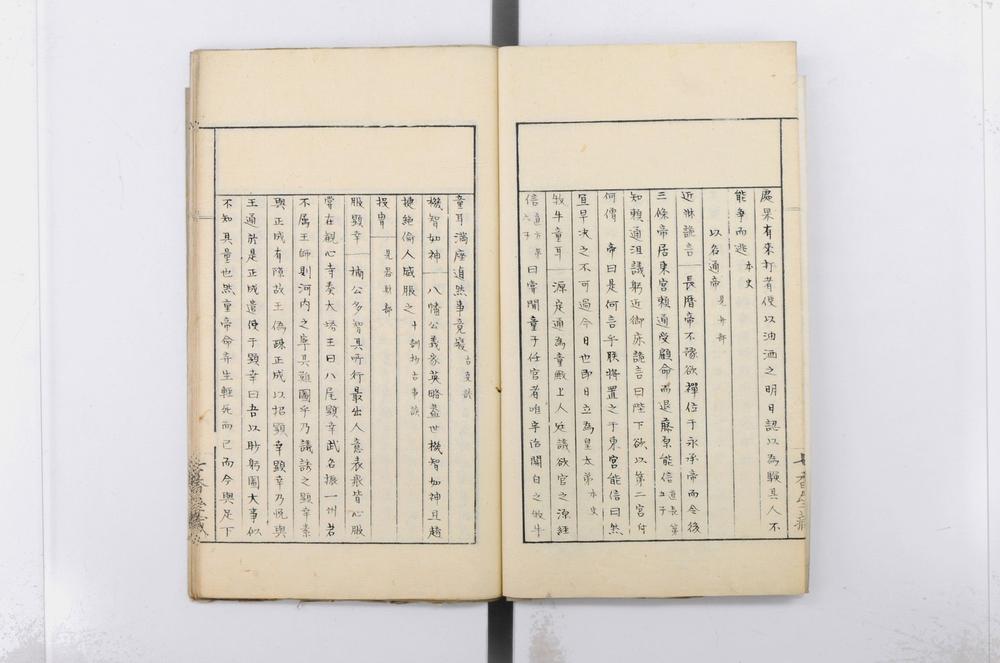 處果有來打者便以油洒之明日認以為驗其人不
能爭而逃 本史
以名通帝 見弁部
近牀詭言 長曆帝不豫欲禪位于永承帝而令後
三條帝居東宮賴通受顧命而退藤原能信 道長第五子
知賴通沮議躬近御床詭言曰陛下欲以第二宮付
何僧 帝曰是何言乎朕將置之于東宮能信曰然
宜早決之不可過今日也即日立為皇太弟 本史
牧牛童耳 源定通為童殿上人廷議欲官之源經
信 道方第六子 曰嘗聞童子任官者唯宇治關白之牧牛
童耳滿座逌然事竟寢 古事談
機智如神 八幡公義家英略蓋世機智如神且趫
捷絕倫人咸服之 十訓抄古事談
投胄 見器物部
服顯幸 楠公多智其所行最出人意表飛皆心服
嘗在觀心寺奏大塔王曰八尾顯幸武名振一州若
不屬王師則河内之寧其難圖乎乃議誘之顯幸素
與正成有隙故王偽疎正成以招顯幸顯幸乃悅與
王通於是正成遣使于顯幸曰吾以眇躬圖大事似
不知其量也然重帝命弃生輕死而已而今與足下